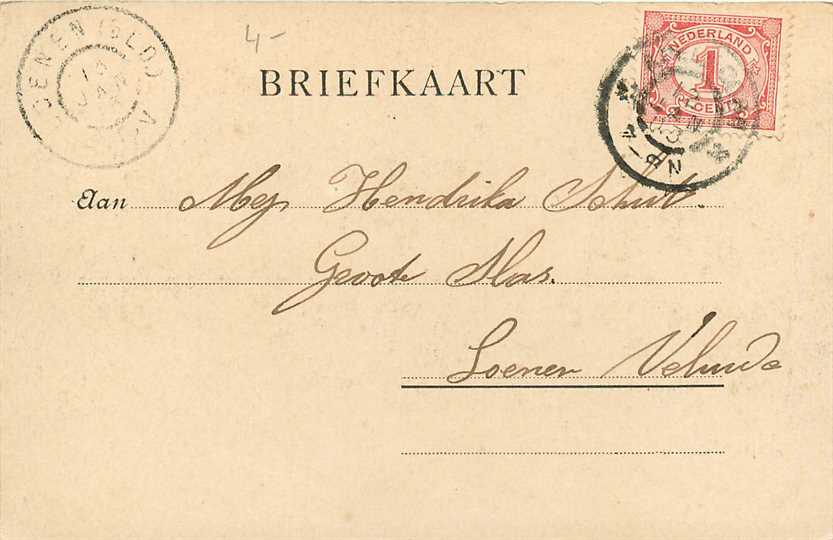 4-
LOENEN (GLD.)
BRIEFKAART
NEDERLAND
1
CENT
Aan Mej Hendrika Schut.
Groote Mar.
Loenen Veluwe